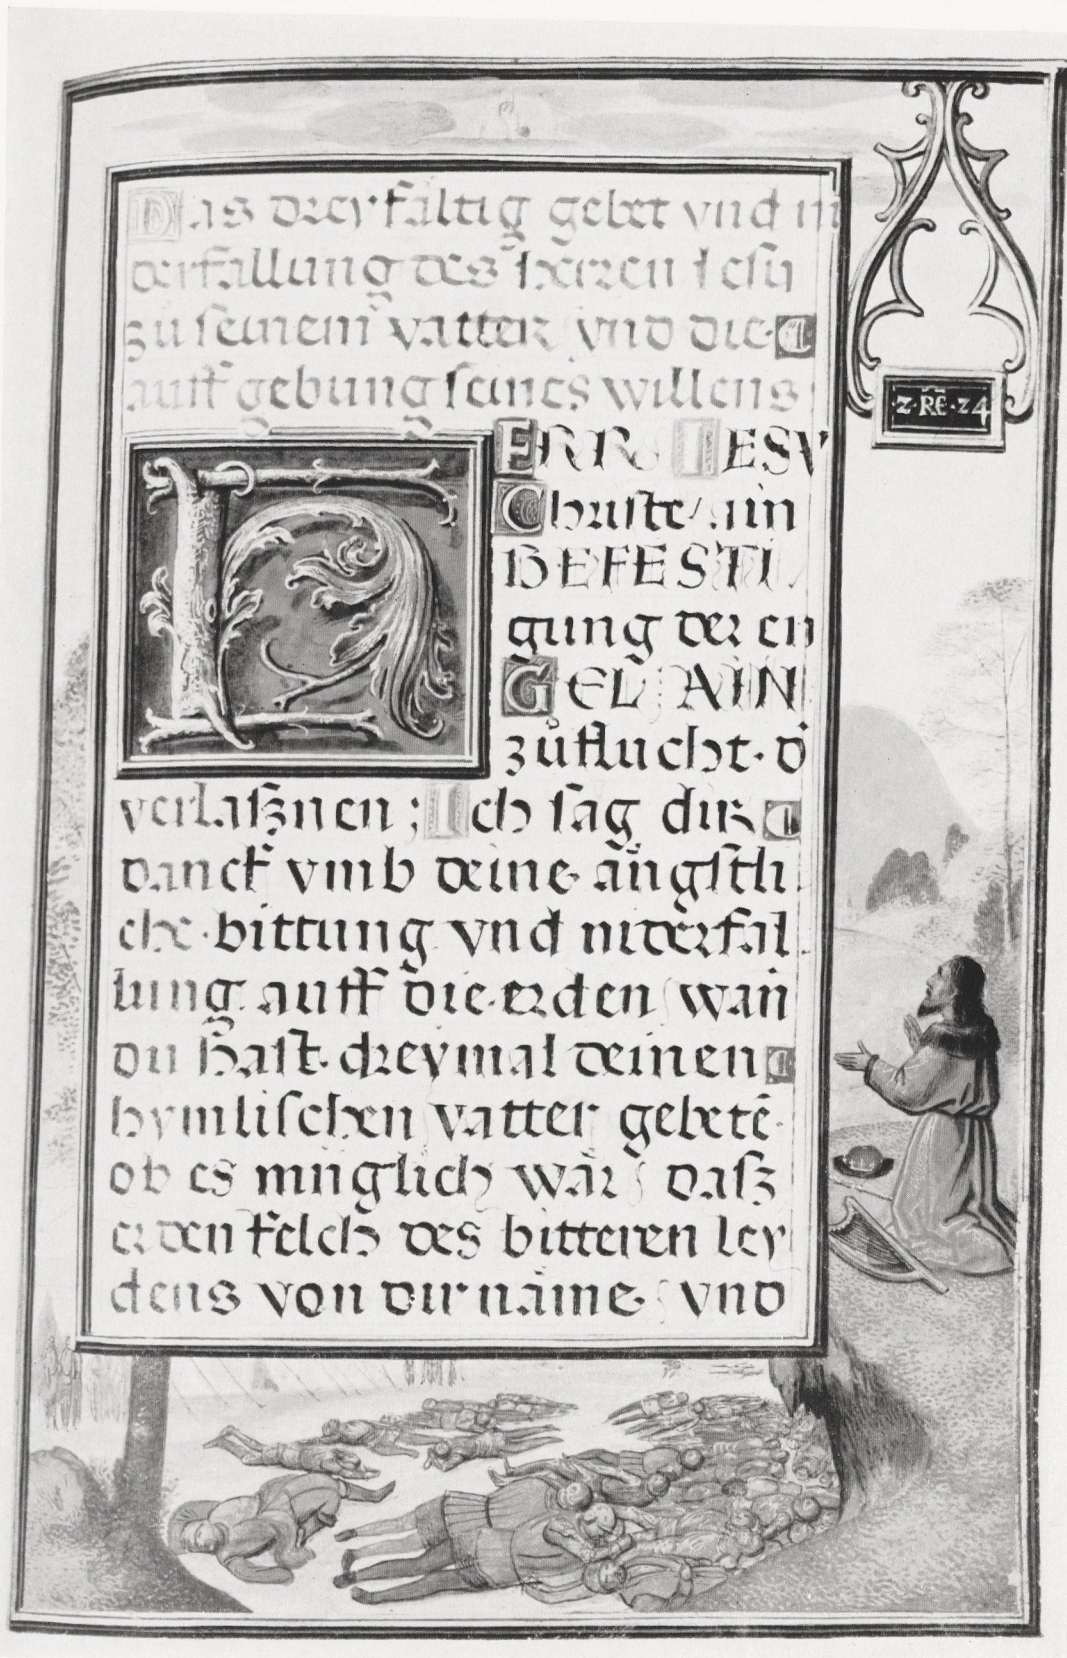 Das dreyfältig gebet vnd ni
derfallung des herren Iesu
zu seinem vatter vnd die
auff gebung seines willens
HERR IESV
Christe / ain
BEFESTI
gung der en
GEL / AIN
zůflucht · d̄
verlaßnen ; Ich sag dir
danck vmb deine ängstli
che bittung vnd niderfal
lung auff die erden / wañ
du hast dreymal deinen
hymlischen vatter gebetē
ob es müglich wär / dasz
er den kelch des bitteren ley
dens von dir näme / vnd
2 · RĒ · 24